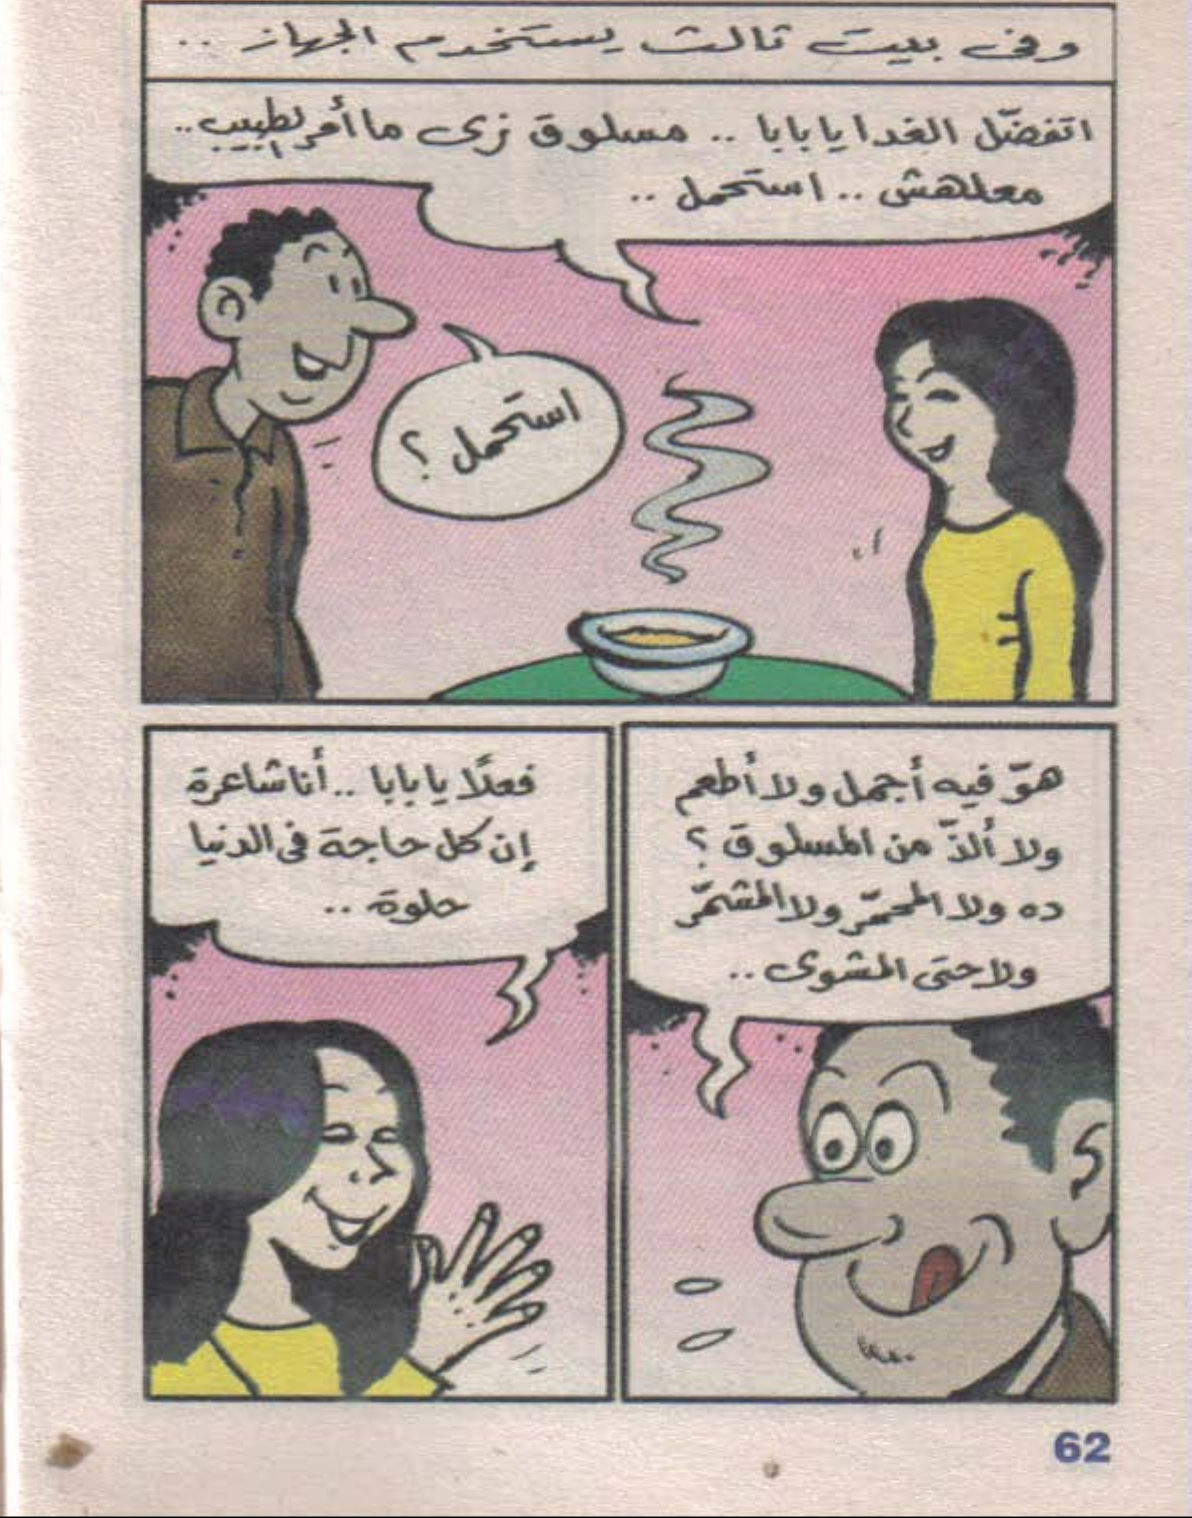 وفى بيت ثالث يستخدم الجهاز ..
اتفضّل الغدا يا بابا .. مسلوق زى ما أمر لطبيب ..
معلهش .. استحمل ..
استحمل ؟
هوّ فيه أجمل ولا أطعم
ولا ألذّ من المسلوق ؟
ده ولا المحمّر ولا المشمّر
ولا حتى المشوى ..
فعلًا يا بابا .. أنا شاعرة
إن كل حاجة فى الدنيا
حلوة ..
62